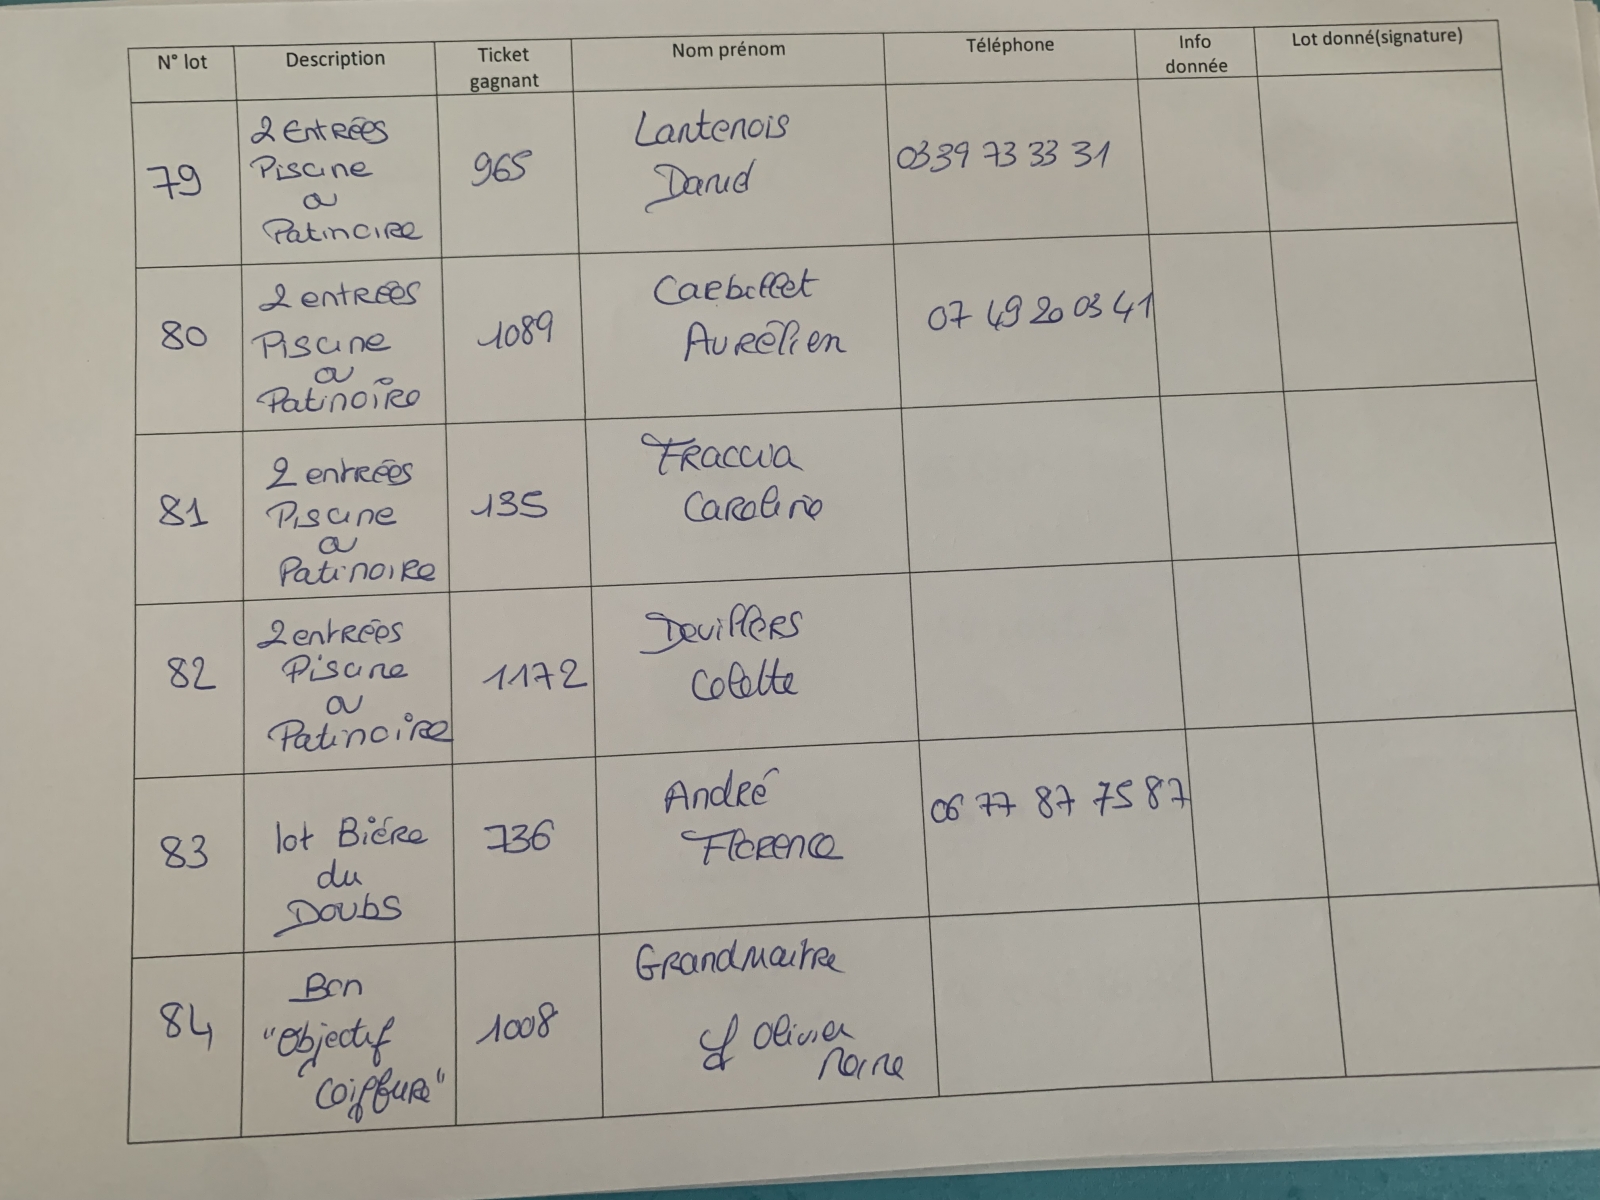 N° lot
Description
Ticket
gagnant
Nom prénom
Téléphone
Info
donnée
Lot donné(signature)
79
2 Entrées
Piscine
ou
Patinoire
965
Lantenois
David
03 39 73 33 31
80
2 entrées
Piscine
ou
Patinoire
1089
Carbillet
Aurélien
07 49 20 03 41
81
2 entrées
Piscine
ou
Patinoire
135
Caroline
82
2 entrées
Piscine
ou
Patinoire
1172
Devillers
Colette
83
lot Bière
du
Doubs
736
André
Florence
06 77 87 75 87
84
Bon
"Objectif
Coiffure"
1008
Grandmaitre
Olivier